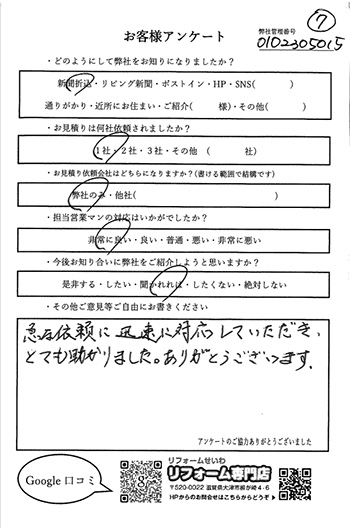 ⑦
お客様アンケート
弊社管理番号
0102305015
・どのようにして弊社をお知りになりましたか?
新聞折込・リビング新聞・ポストイン・HP・SNS( )
通りがかり・近所にお住まい・ご紹介( 様)・その他( )
・お見積りは何社依頼されましたか?
1社・2社・3社・その他 ( 社)
・お見積り依頼会社はどちらになりますか?(書ける範囲で結構です)
弊社のみ・他社( )
・担当営業マンの対応はいかがでしたか?
非常に良い・良い・普通・悪い・非常に悪い
・今後お知り合いに弊社をご紹介しようと思いますか?
是非する・したい・聞かれれば・したくない・絶対しない
・その他ご意見等ご自由にお書きください
急な依頼に迅速に対応していただき、
とても助かりました。ありがとうございます。
アンケートのご協力ありがとうございました
Google 口コミ
リフォームせいわ
リフォーム専門店
〒520-0022 滋賀県大津市柳が崎4-6
HPからのお問合せはこちらからどうぞ